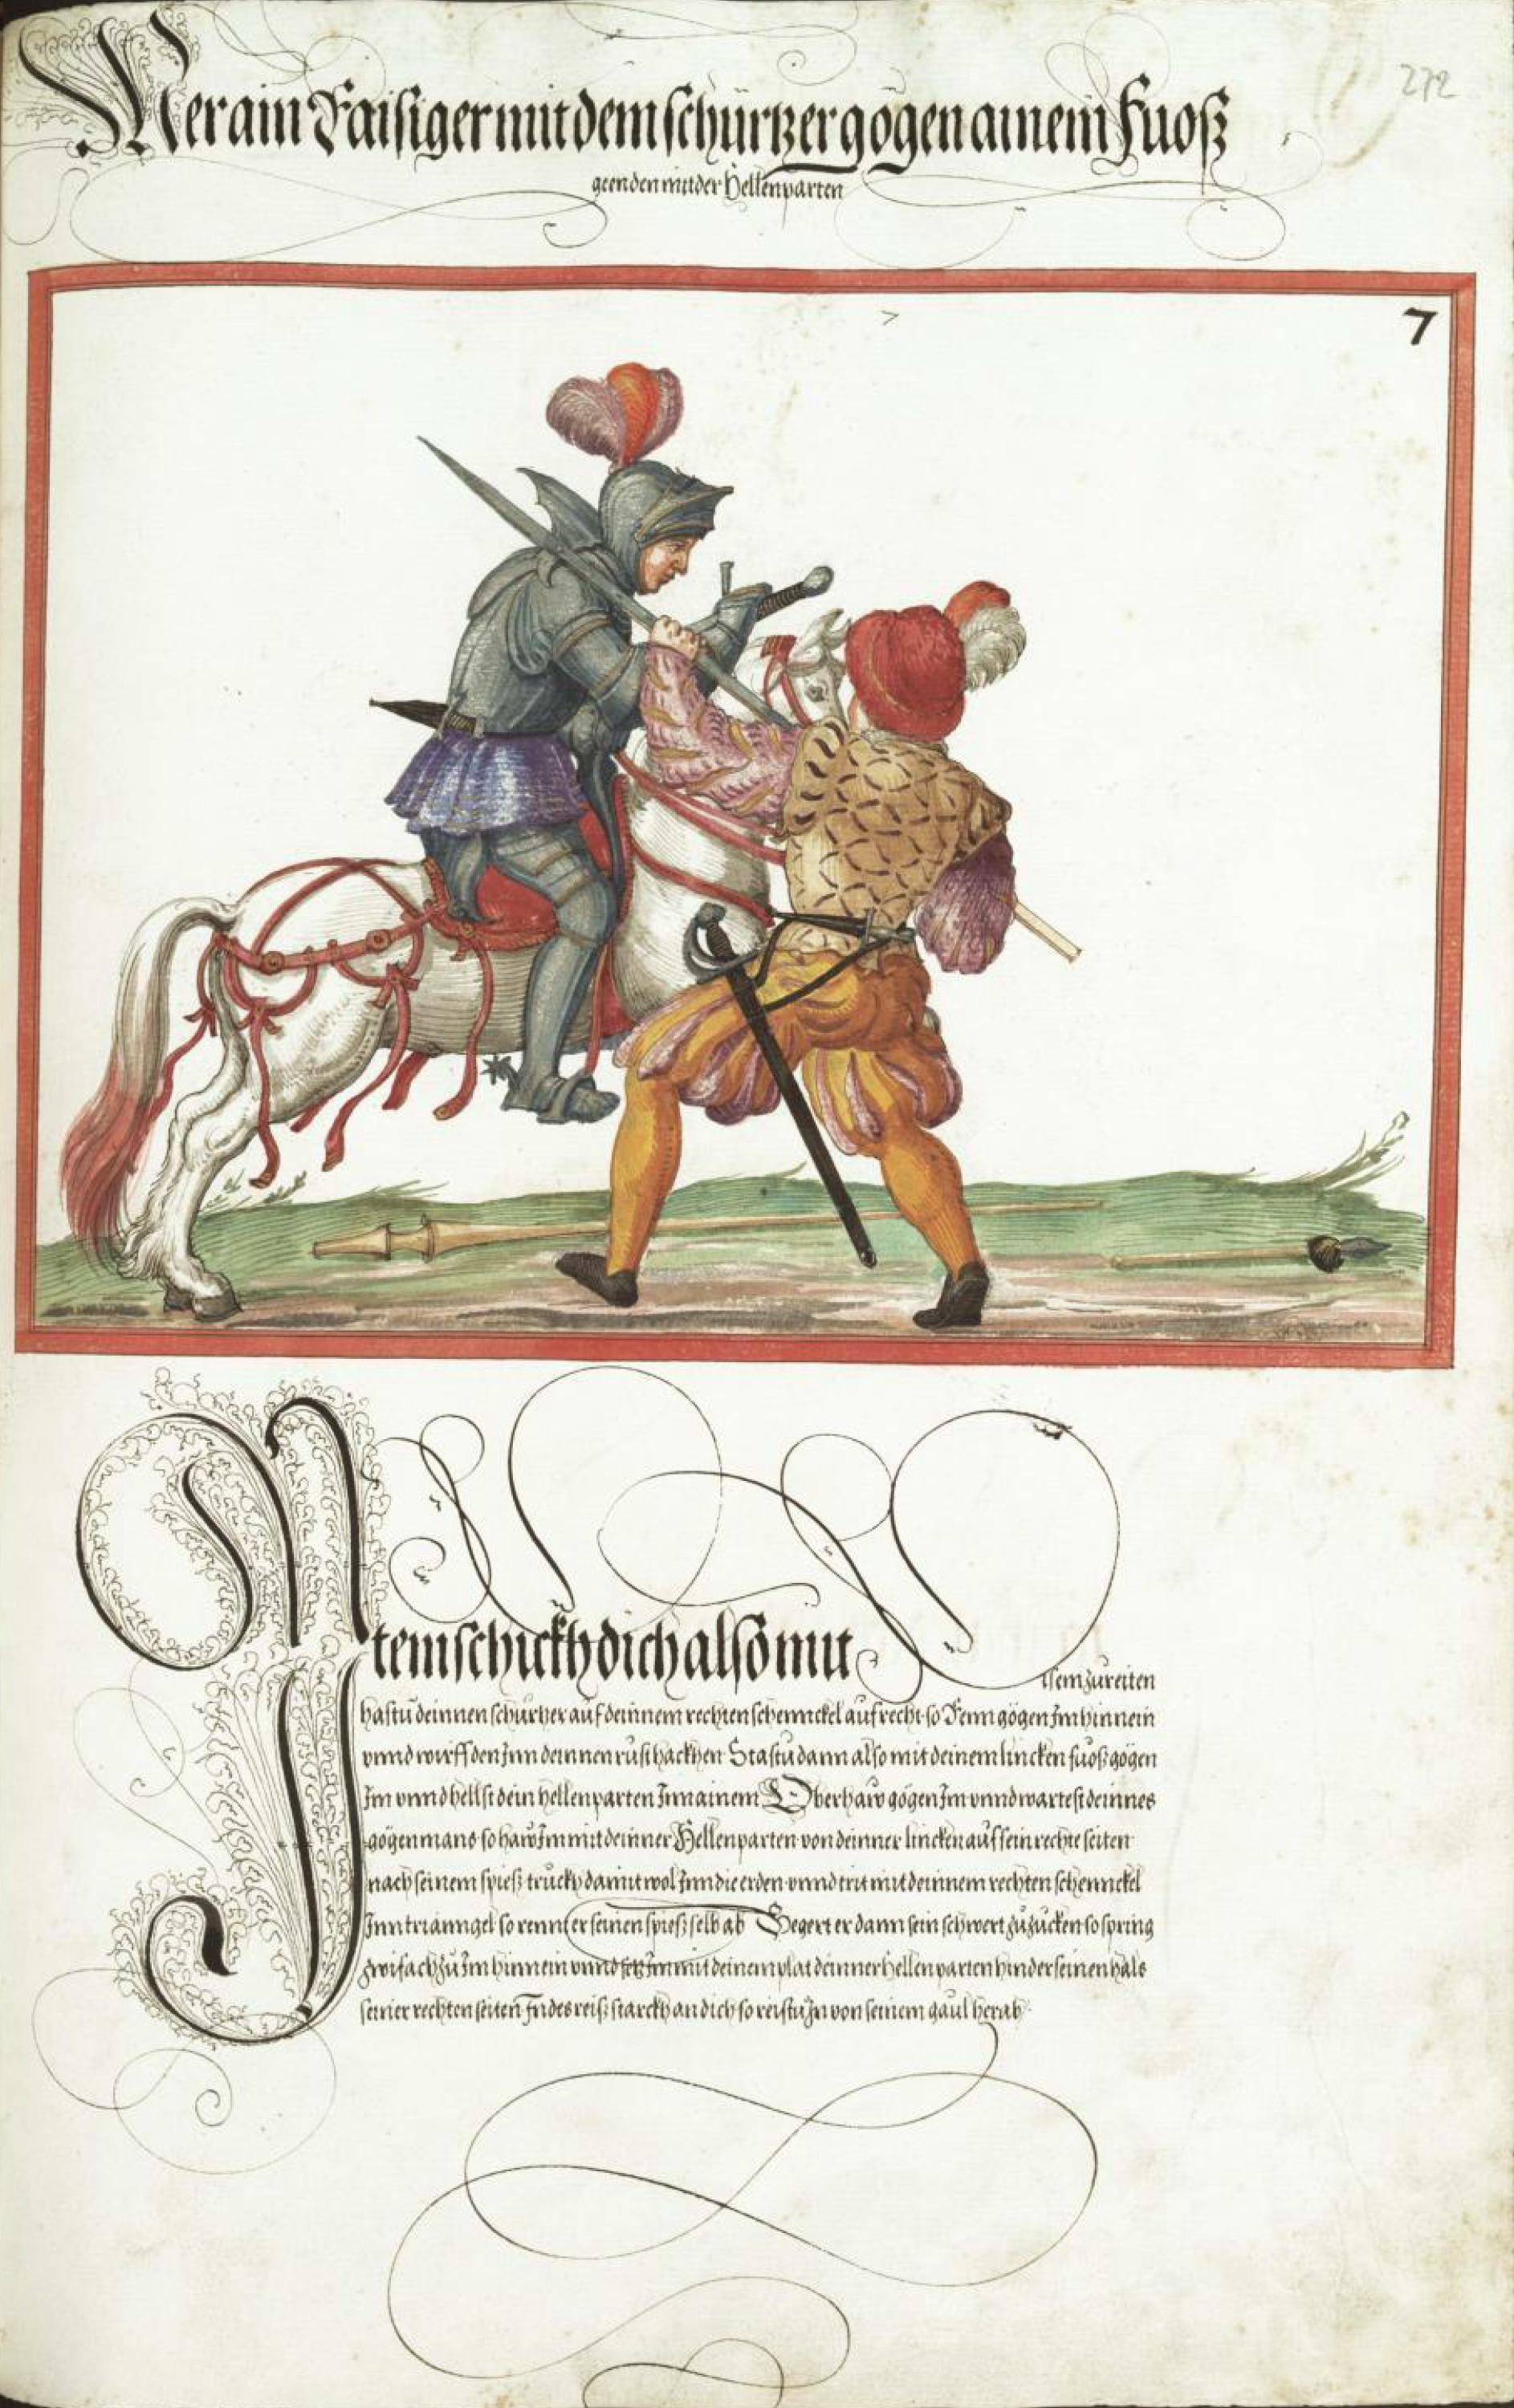 272
Mer ain Raisiger mit dem schürtzer gögen ainem Fuosz
geenden mit der Hellenparten
7
Item schickh dich also mit
disem zu reiten
hastu deinnen schurtzer auf deinnem rechten schennckel aufrecht so Renn gögen Im hinnein
vnnd wirff den Inn deinnen rüsthackhen Stastu dann also mit deinem lincken fuosz gögen
Im vnnd hellst dein hellenparten Inn ainem Oberhaw gögen Im vnnd wartest deinnes
gögenmans so haw Im mit deinner Hellenparten von deinner lincken auf sein rechte seiten
nach seinem spiesz truckh damit wol Inn die erden vnnd trit mit deinnem rechten schennckel
Inn trianngel so rennt er seinen spiesz selb ab Begert er dann sein schwert zu zucken so spring
zwifach zu Im hinnein vnnd setz Im mit deinem plat deinner hellenparten hinder seinen hals
seiner rechten seiten Indes reisz starckh an dich so reistu In von seinem gaul herab